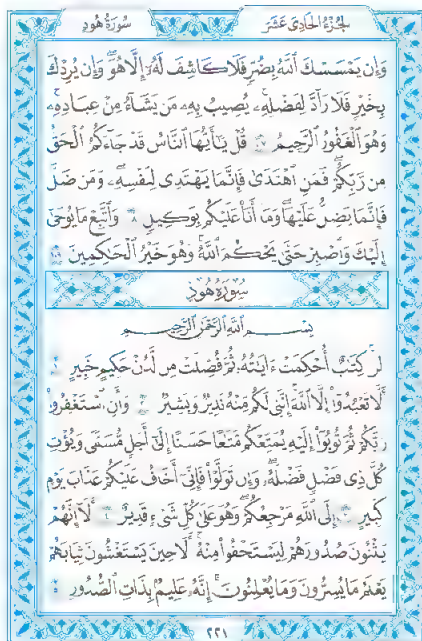 الجزء الحادى عشر
سورة هود
وَإِن يَمْسَسْكَ ٱللَّهُ بِضُرٍّ فَلَا كَاشِفَ لَهُۥٓ إِلَّا هُوَ وَإِن يُرِدْكَ
بِخَيْرٍ فَلَا رَآدَّ لِفَضْلِهِۦ يُصِيبُ بِهِۦ مَن يَشَآءُ مِنْ عِبَادِهِۦ
وَهُوَ ٱلْغَفُورُ ٱلرَّحِيمُ ١٠٧ قُلْ يَٰٓأَيُّهَا ٱلنَّاسُ قَدْ جَآءَكُمُ ٱلْحَقُّ
مِن رَّبِّكُمْ فَمَنِ ٱهْتَدَىٰ فَإِنَّمَا يَهْتَدِى لِنَفْسِهِۦ وَمَن ضَلَّ
فَإِنَّمَا يَضِلُّ عَلَيْهَا وَمَآ أَنَا۠ عَلَيْكُم بِوَكِيلٍ ١٠٨ وَٱتَّبِعْ مَا يُوحَىٰٓ
إِلَيْكَ وَٱصْبِرْ حَتَّىٰ يَحْكُمَ ٱللَّهُ وَهُوَ خَيْرُ ٱلْحَٰكِمِينَ ١٠٩
سُورَةُ هُودٍ
بِسْمِ ٱللَّهِ ٱلرَّحْمَٰنِ ٱلرَّحِيمِ
الٓر كِتَٰبٌ أُحْكِمَتْ ءَايَٰتُهُۥ ثُمَّ فُصِّلَتْ مِن لَّدُنْ حَكِيمٍ خَبِيرٍ ١
أَلَّا تَعْبُدُوٓا۟ إِلَّا ٱللَّهَ إِنَّنِى لَكُم مِّنْهُ نَذِيرٌ وَبَشِيرٌ ٢ وَأَنِ ٱسْتَغْفِرُوا۟
رَبَّكُمْ ثُمَّ تُوبُوٓا۟ إِلَيْهِ يُمَتِّعْكُم مَّتَٰعًا حَسَنًا إِلَىٰٓ أَجَلٍ مُّسَمًّى وَيُؤْتِ
كُلَّ ذِى فَضْلٍ فَضْلَهُۥ وَإِن تَوَلَّوْا۟ فَإِنِّىٓ أَخَافُ عَلَيْكُمْ عَذَابَ يَوْمٍ
كَبِيرٍ ٣ إِلَى ٱللَّهِ مَرْجِعُكُمْ وَهُوَ عَلَىٰ كُلِّ شَىْءٍ قَدِيرٌ ٤ أَلَآ إِنَّهُمْ
يَثْنُونَ صُدُورَهُمْ لِيَسْتَخْفُوا۟ مِنْهُ أَلَا حِينَ يَسْتَغْشُونَ ثِيَابَهُمْ
يَعْلَمُ مَا يُسِرُّونَ وَمَا يُعْلِنُونَ إِنَّهُۥ عَلِيمٌۢ بِذَاتِ ٱلصُّدُورِ
٢٢١